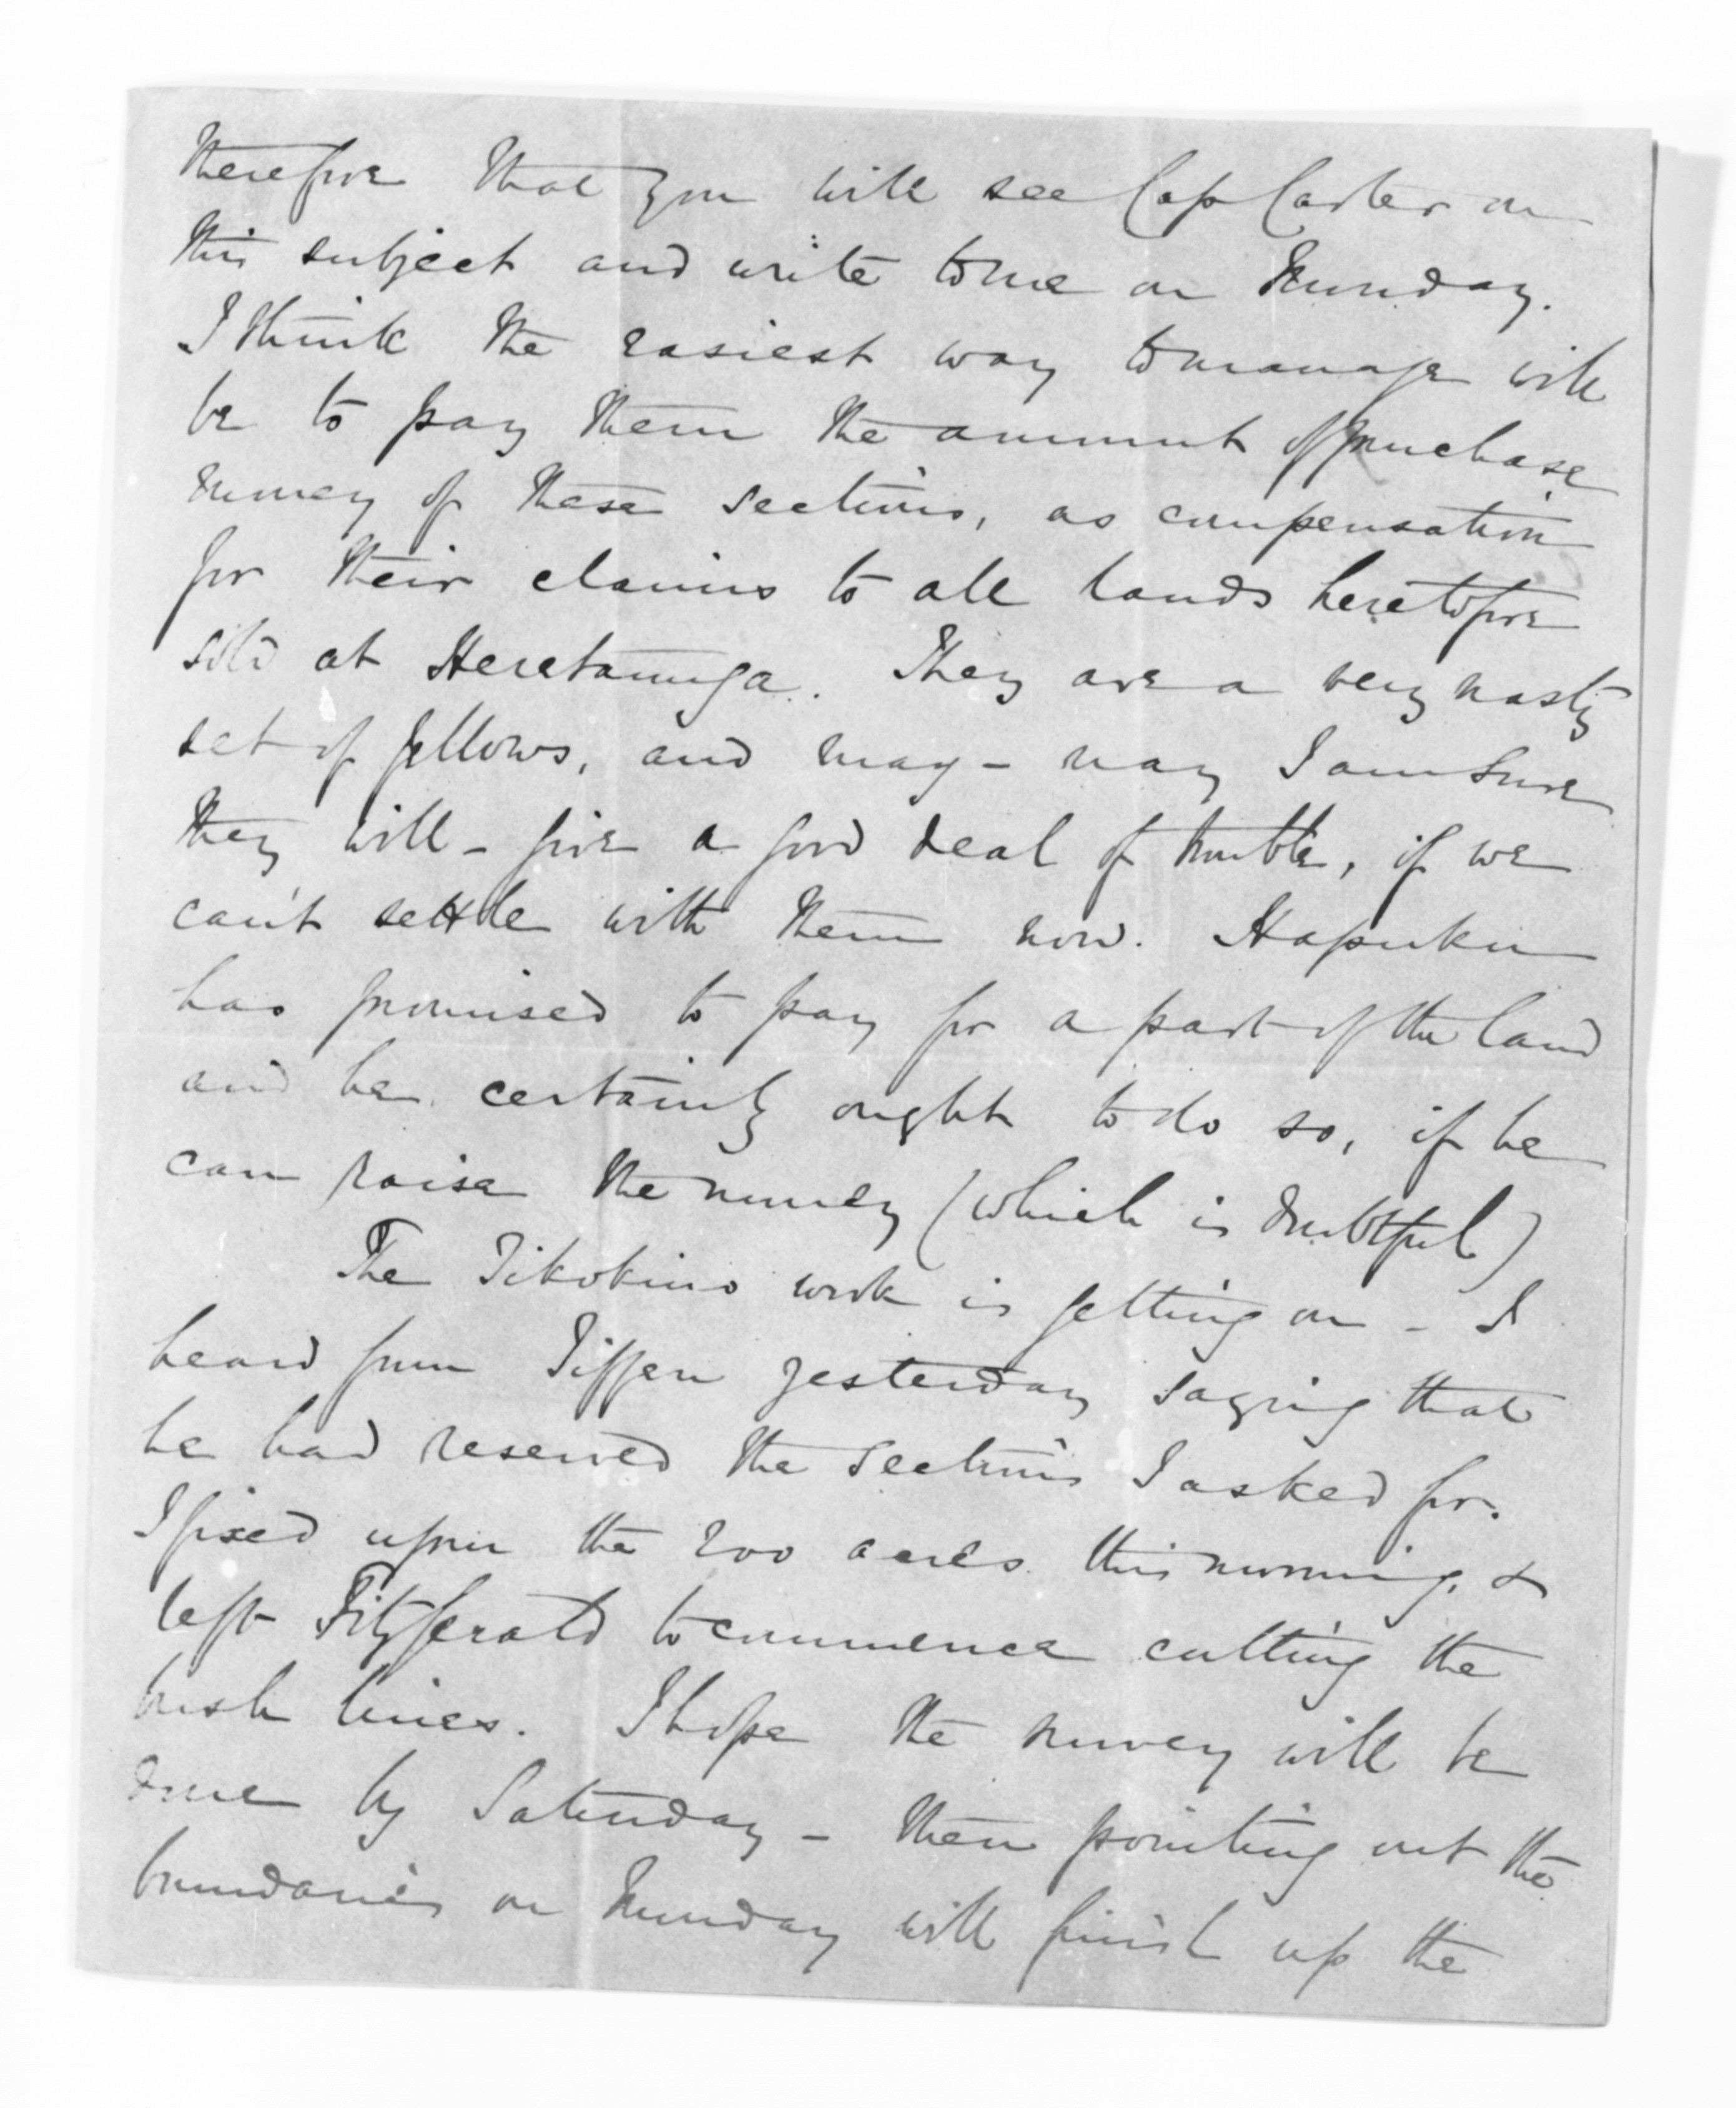 therefore that you will see Cap Carter on
this subject and write to me on Monday.
I think the easiest way to manage will
be to pay them the amount of purchase
money of these sections, as compensation
for their claims to all lands heretofore
sold at Heretaunga. They are a very nasty
set of fellows, and may - nay I am sure
they will - give a good deal of trouble, if we
can't settle with them now. Hapuku
has promised to pay for a part of the land
and he certainly ought to do so, if he
can raise the money (which is doubtful)
The Tikokino work is getting on - I
heard from Tiffen yesterday saying that
he had reserved the sections I asked for.
I fixed upon the 200 acres this morning, &
left Fitzgerald to commence cutting the
bush lines. I hope the survey will be
done by Saturday - then pointing out the
boundaries on Monday will finish up the